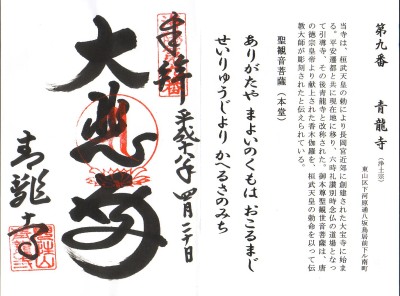 第九番　青龍寺（浄土宗）
東山区下河原通八坂鳥居前下ル南町
当寺は、桓武天皇の勅により長岡宮近郊に創建された大宝寺に始ま
る。平安遷都と共に現在地に移り、六時礼讃別時念仏の道場となっ
て引導寺、その後青龍寺と改称された。御本尊聖観世音菩薩は、唐
の徳宗皇帝より献上された香木伽羅を、桓武天皇の勅命を以って伝
教大師が彫刻されたと伝えられている。
聖観音菩薩（本堂）
ありがたや　まよいのくもは　おこるまじ
せいりゅうじより　かへるさのみち
奉拝
平成十八年　四月二十日
大悲殿
青龍寺